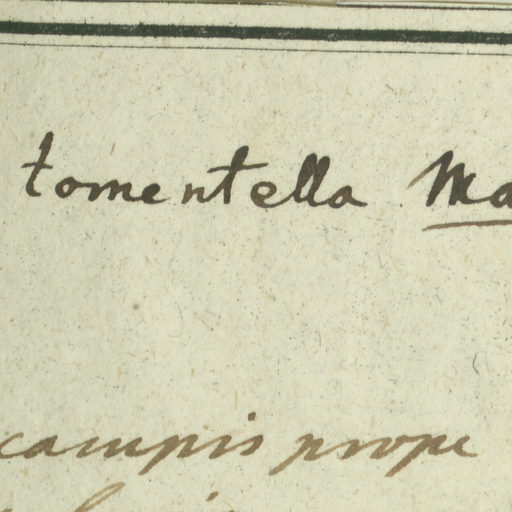 tomentella Ma
campis prope